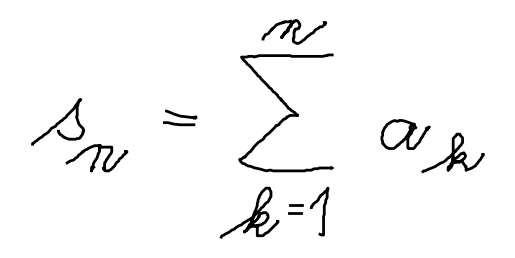 s_n = \sum_{k=1}^{n} a_k